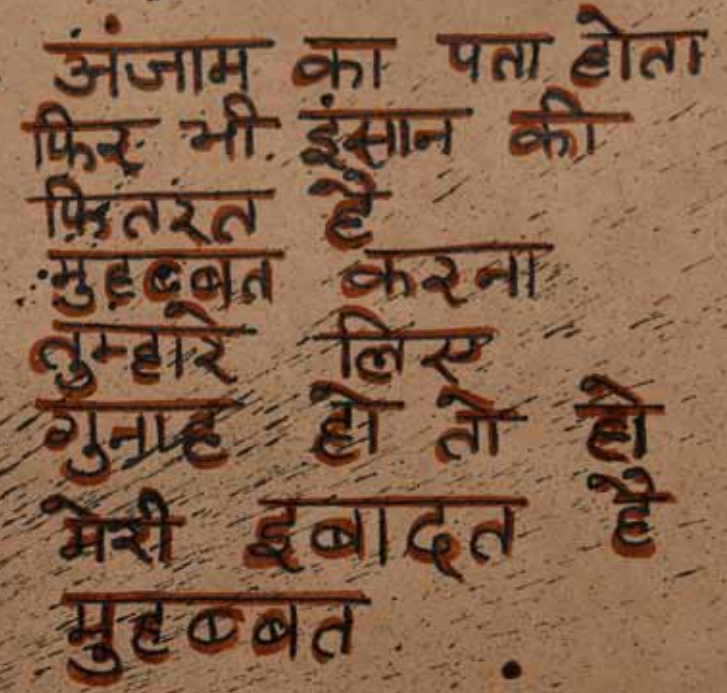 अंजाम का पता होता
फिर भी इंसान की
फितरत है
मुहब्बत करना
तुम्हारे लिए
गुनाह हो तो हो
मेरी इबादत है
मुहब्बत